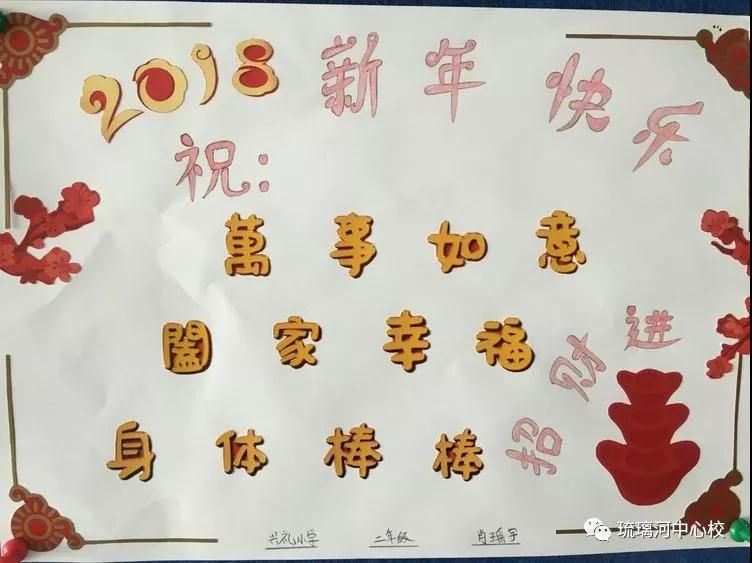 2018 新年快乐
祝:
萬事如意
闔家幸福
身体棒棒
招财进
兴礼小学 二年级 肖瑶宇
琉璃河中心校